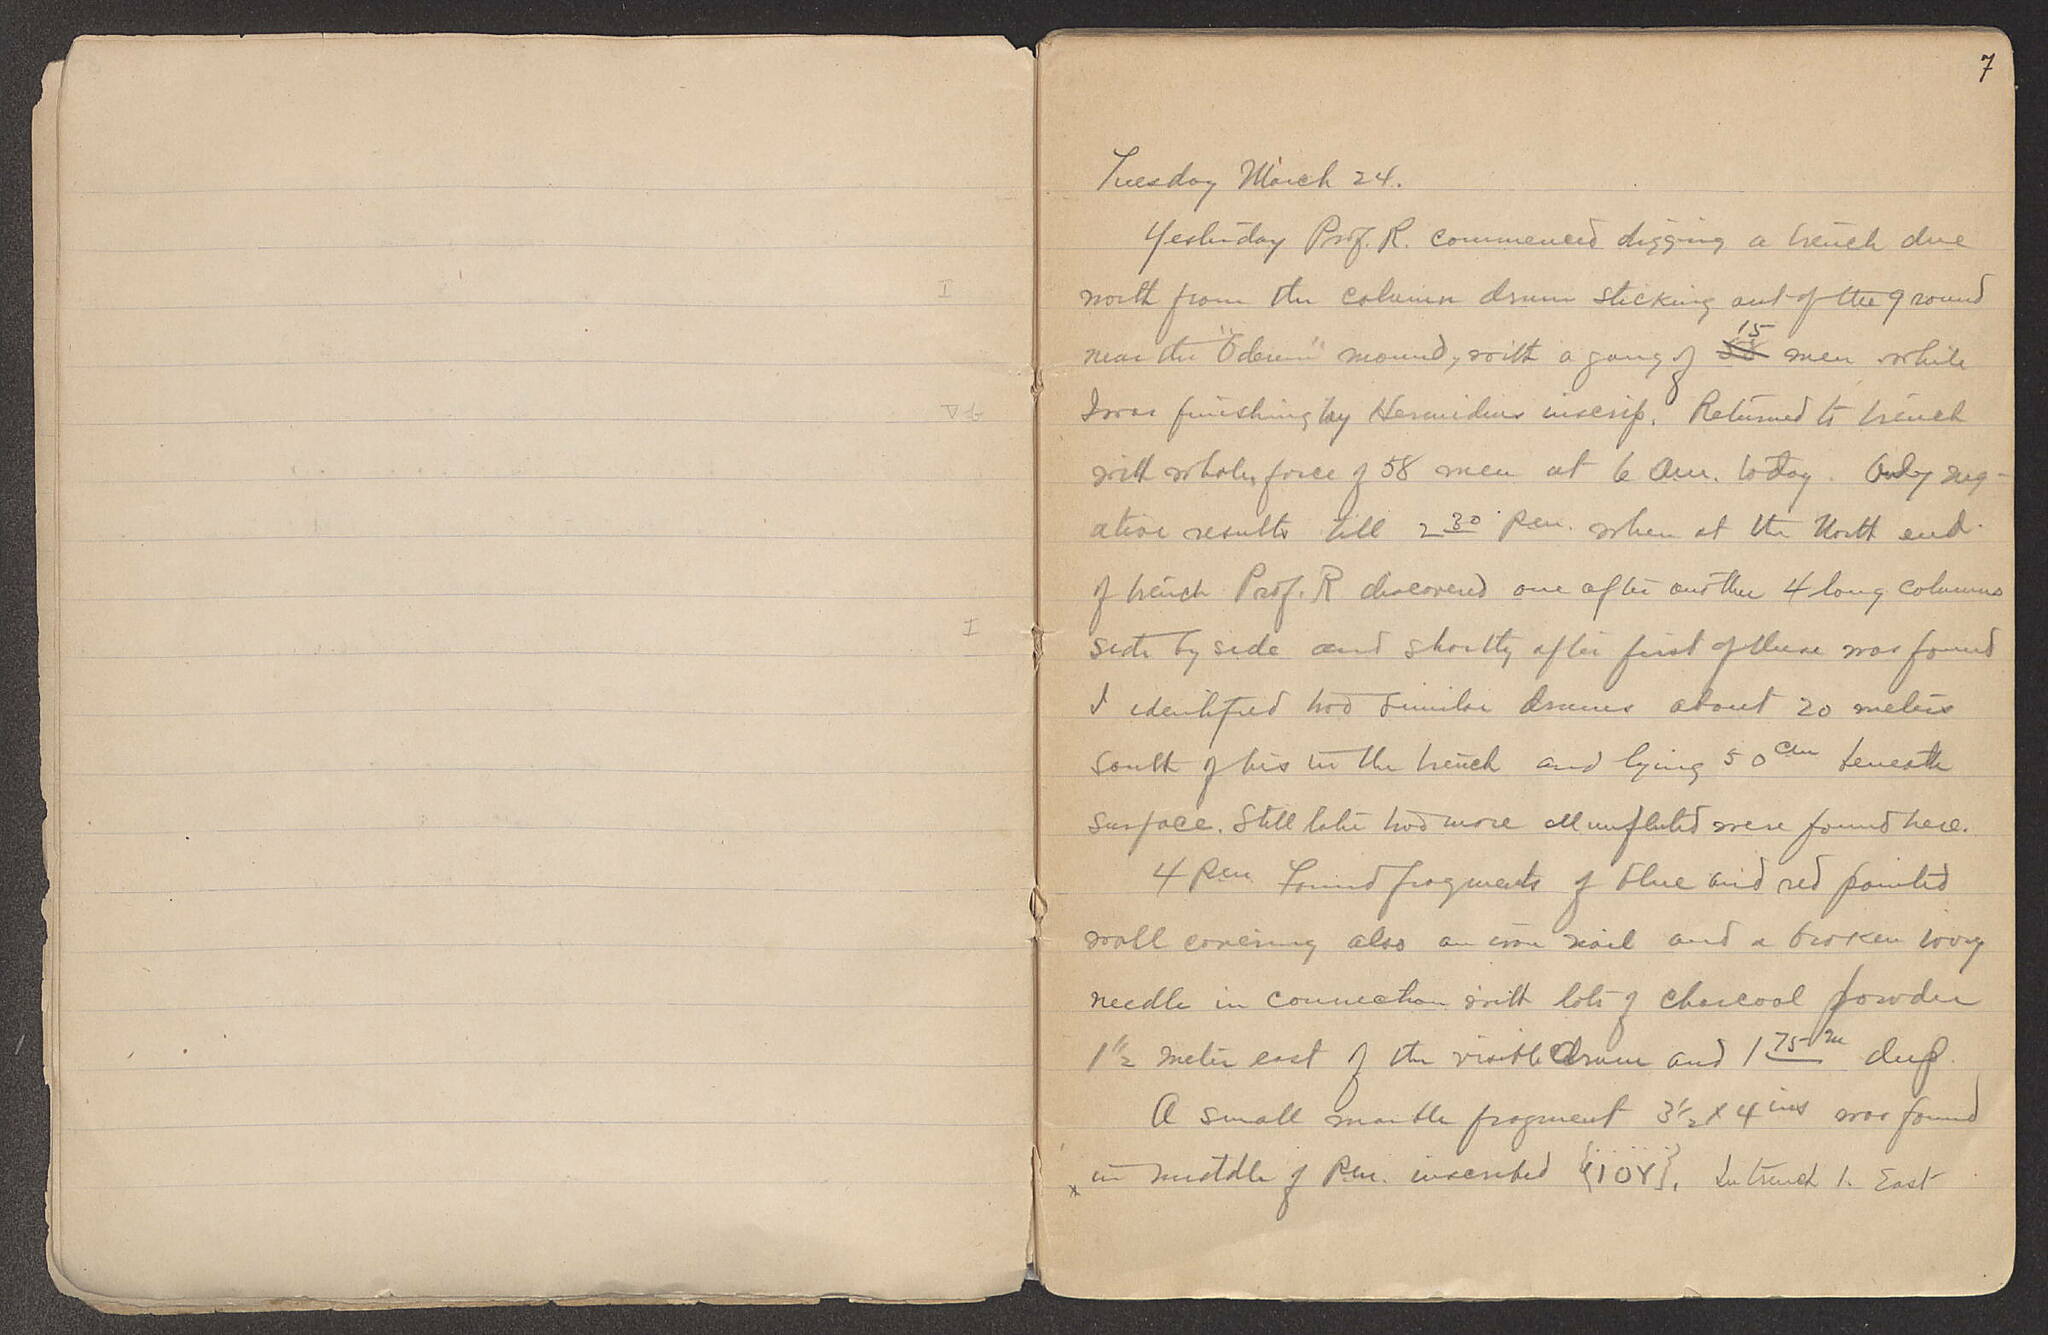 7
Tuesday March 24.
Yesterday Prof. R. commenced digging a trench due
north from the column drum sticking out of the ground
near the "Odeum" mound, with a gang of 15 men while
I was finishing by Hermidius inscrip. Returned to trench
with whole force of 58 men at 6 am. today. Only neg-
ative results till 2 30 P.m. when at the North end
of trench Prof. R discovered one after another 4 long columns
side by side and shortly after first of these was found
I identified two similar drums about 20 meters
south of his in the trench and lying 50 cm beneath
surface. Still later two more all unfluted were found here.
4 P.m. Found fragments of blue and red painted
wall covering also an iron nail and a broken ivory
needle in connection with lots of charcoal powder
1 1/2 meter east of the visible drum and 1 75 m deep.
A small marble fragment 3 1/2 x 4 ins was found
x in middle of P.m. inscribed {ΙΟΥ}. In trench 1. East